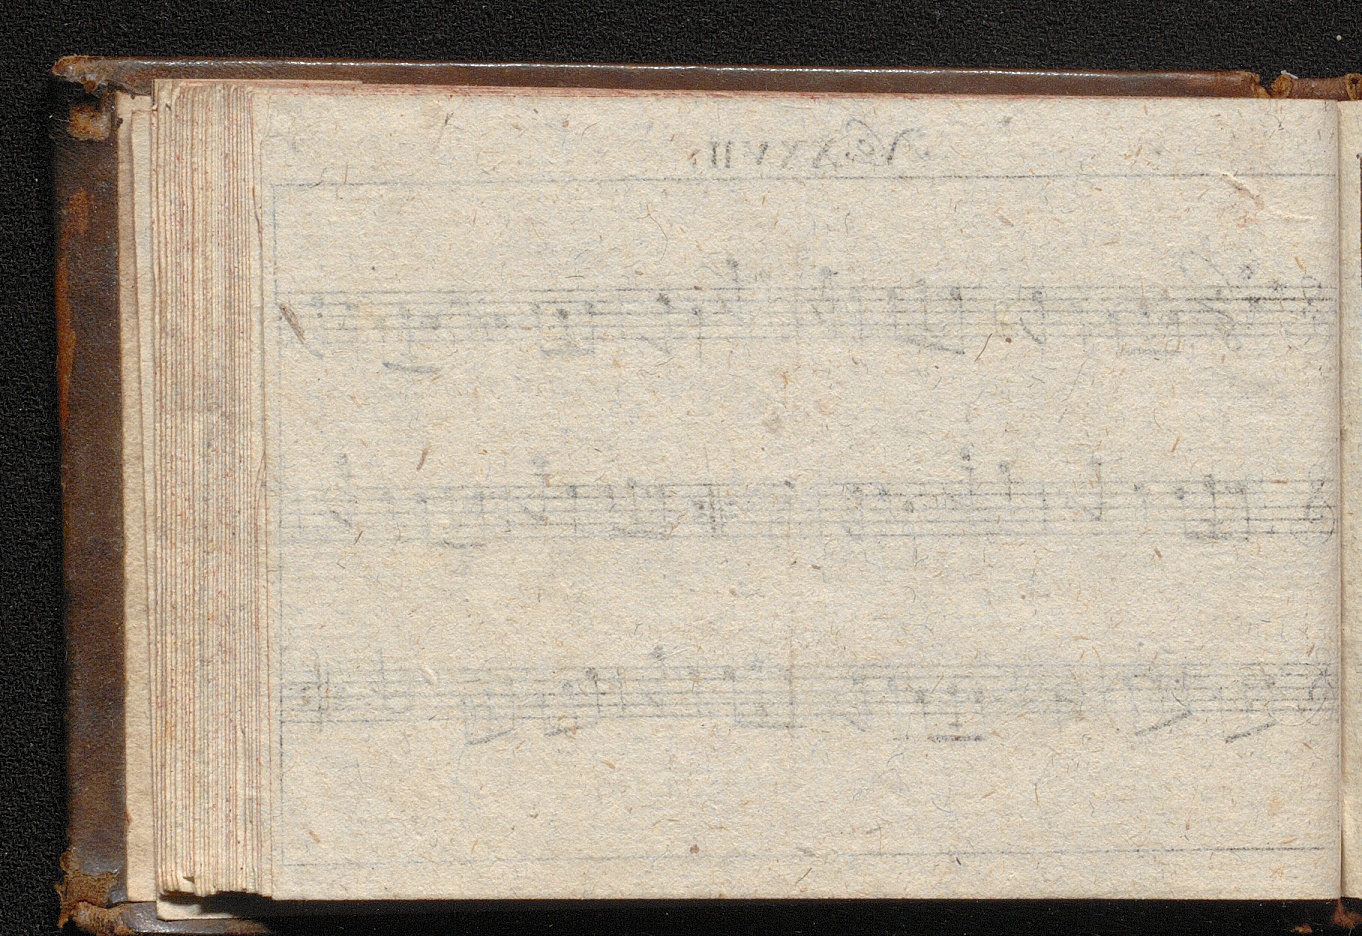 No XXVII.